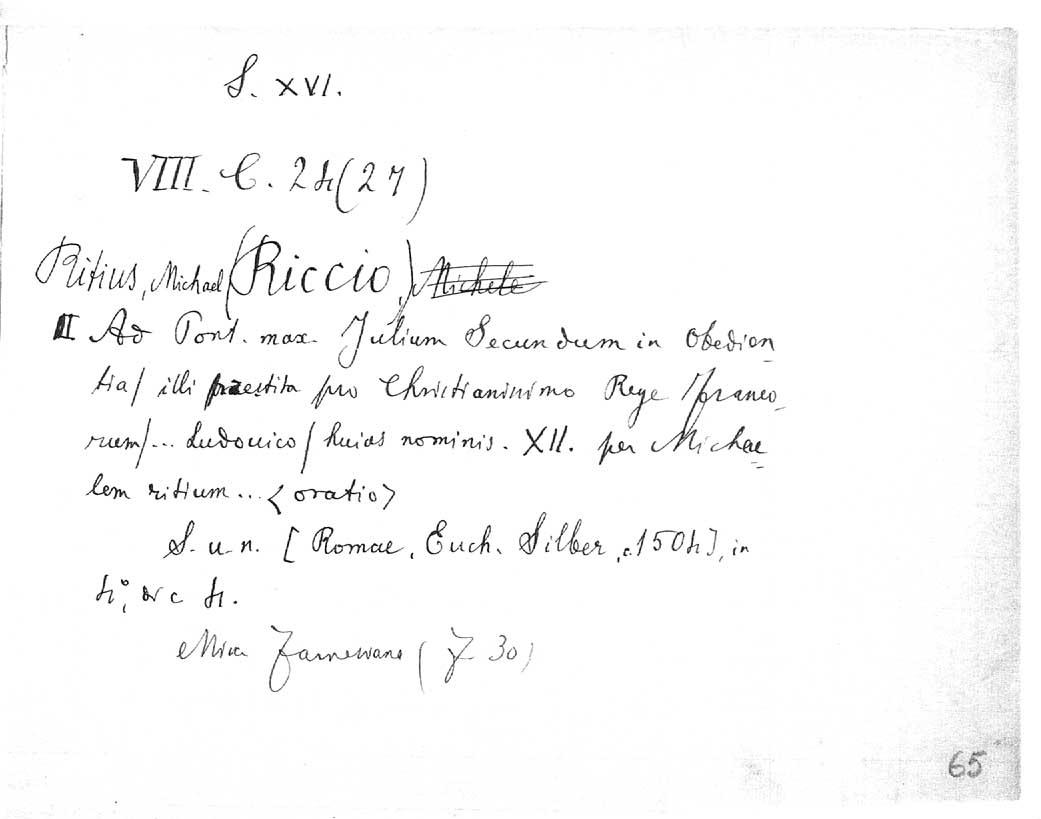 S. XVI.
VIII. C. 24(27)
Ritius, Michael (Riccio,) Michele
Ad Pont. max. Julium Secundum in Obedien=
tia/ illi praestita pro Christianissimo Rege /franco=
rum/... Ludouico/ huius nominis. XII. per Michae=
lem ritium... <oratio>
S. u. n. [Romae, Euch. Silber, c. 1504], in
4°, arc 4.
65